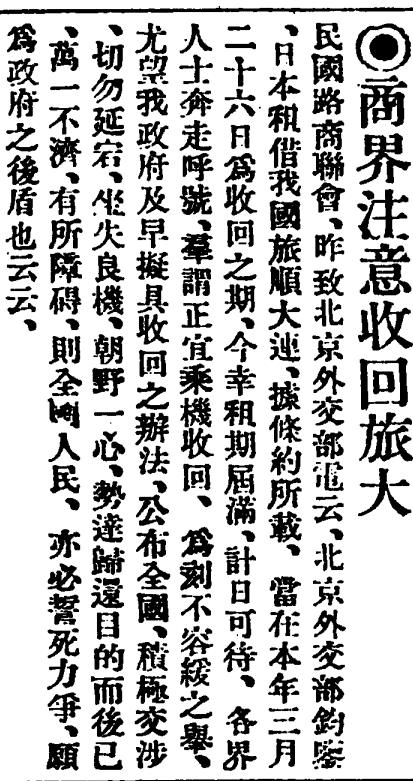 ◉商界注意收回旅大
民國路商聯會、昨致北京外交部電云、北京外交部鈞鑒
、日本租借我國旅順大連、據條約所載、當在本年三月
二十六日爲收回之期、今幸租期屆滿、計日可待、各界
人士奔走呼號、羣謂正宜乘機收回、爲刻不容緩之舉、
尤望我政府及早擬具收回之辦法、公布全國、積極交涉
、切勿延宕、坐失良機、朝野一心、勢達歸還目的而後已
、萬一不濟、有所障碍、則全國人民、亦必誓死力爭、願
爲政府之後盾也云云、